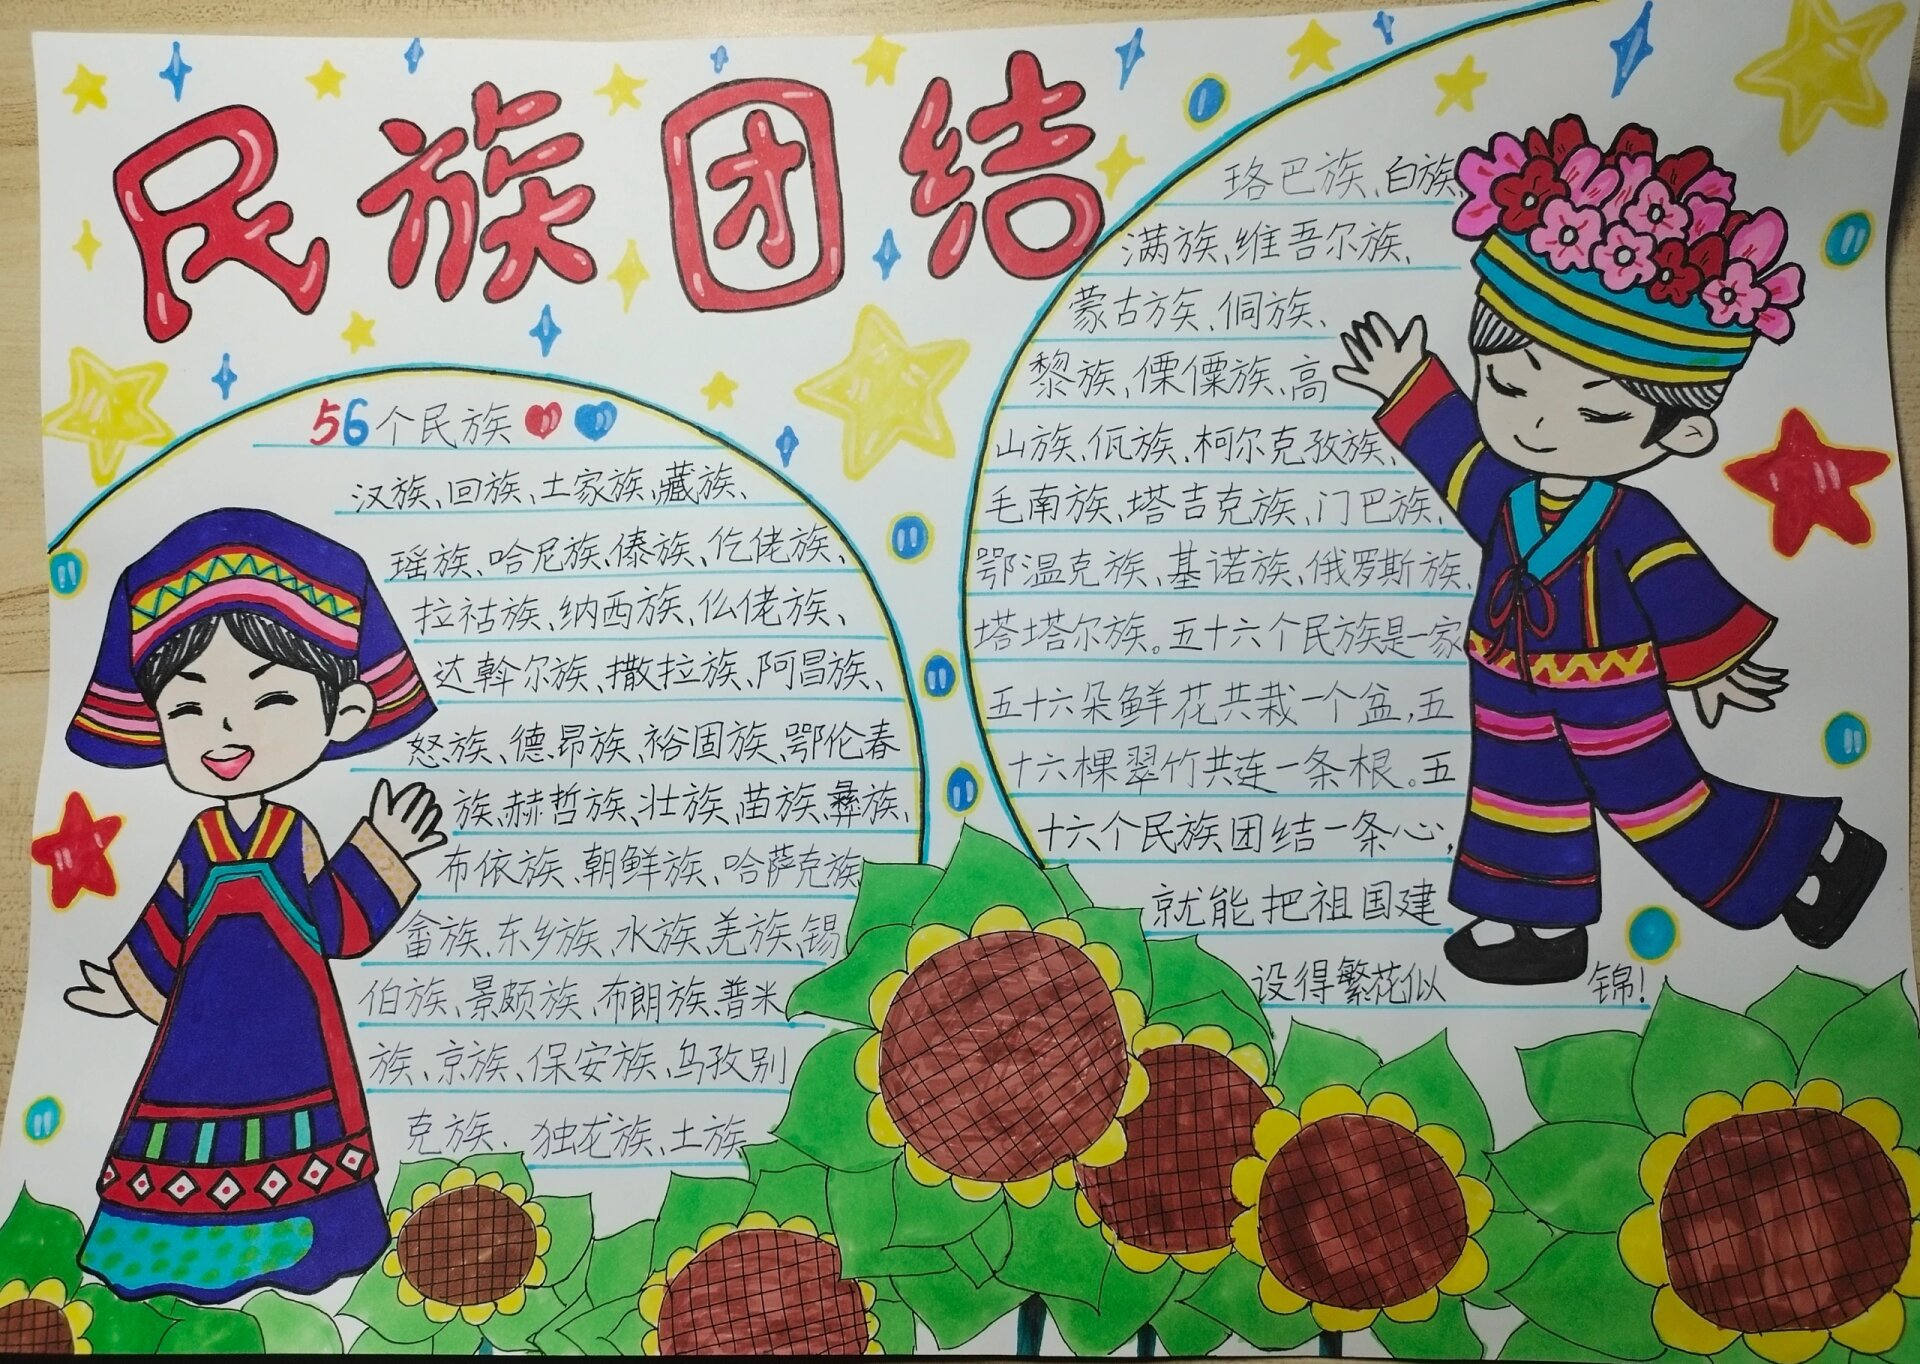 民族团结
56个民族
汉族、回族、土家族、藏族、
瑶族、哈尼族、傣族、仡佬族、
拉祜族、纳西族、仫佬族、
达斡尔族、撒拉族、阿昌族、
怒族、德昂族、裕固族、鄂伦春
族、赫哲族、壮族、苗族、彝族、
布依族、朝鲜族、哈萨克族
畲族、东乡族、水族、羌族、锡
伯族、景颇族、布朗族、普米
族、京族、保安族、乌孜别
克族、独龙族、土族
珞巴族、白族、
满族、维吾尔族、
蒙古族、侗族、
黎族、傈僳族、高
山族、佤族、柯尔克孜族、
毛南族、塔吉克族、门巴族、
鄂温克族、基诺族、俄罗斯族、
塔塔尔族。五十六个民族是一家
五十六朵鲜花共栽一个盆,五
十六棵翠竹共连一条根。五
十六个民族团结一条心,
就能把祖国建
设得繁花似锦!